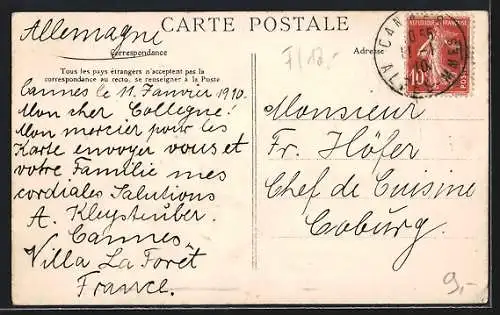 CARTE POSTALE
Allemagne
Correspondance
Adresse
Tous les pays étrangers n'acceptent pas la
correspondance au recto, se renseigner à la Poste
Cannes le 11. Janvier 1910.
Mon cher Collegue!
Mon mercier pour les
Karte envoyer vous et
votre Familie mes
cordiales Salutions
A. Kleysteuber.
Cannes
Villa La Forêt
France.
Monsieur
Fr. Höfer
Chef de Cuisine
Coburg.
REPUBLIQUE FRANÇAISE
10
POSTES
CANNES
9,-